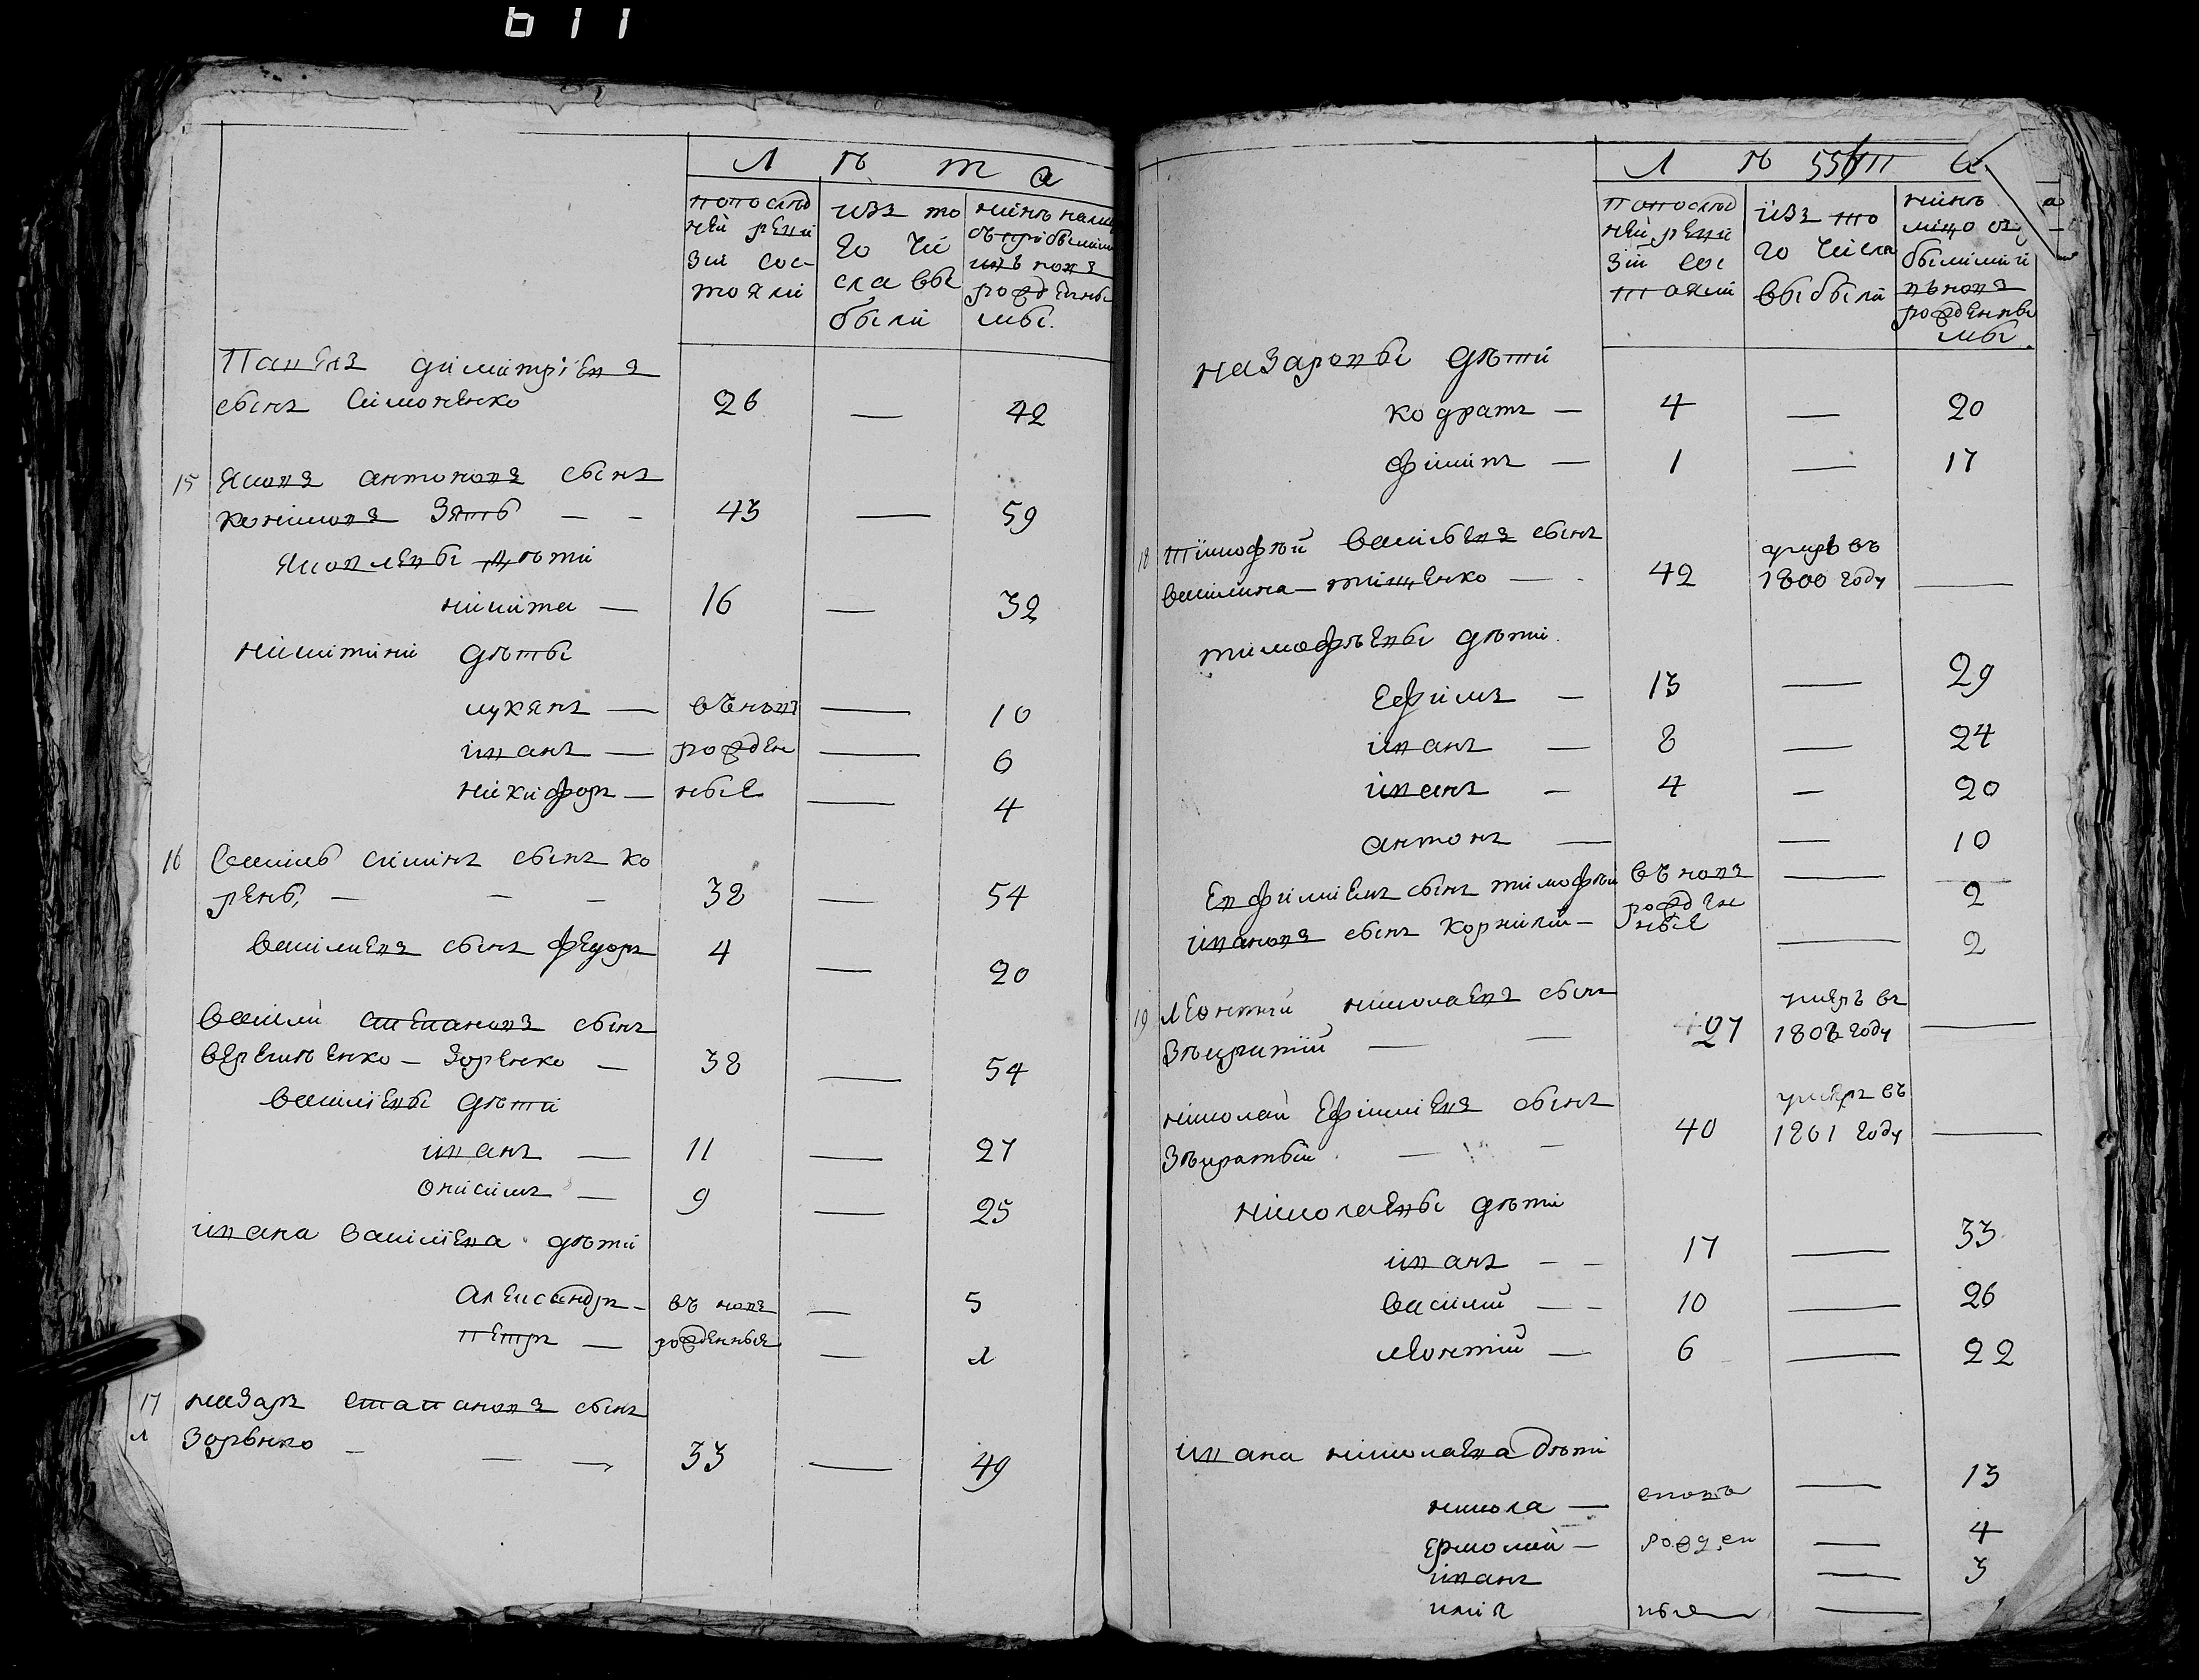 611
Л ѣ т а
попослѣд
ней реви
зіи сос-
тояли
изъ то
го чи
сла вы
были
нинѣ нали
съ прибылими
рожденны
ми.
Павелъ димитріевъ
сынъ Симоненко 26 — 42
15 Яковъ антоновъ сынъ
зять — — 43 — 59
Яковлевы дѣти
никита — 16 — 32
никитини дѣты
лукянъ — въновъ — 10
иванъ — рожден — 6
никифоръ — ные — 4
16 Василь сынъ ко
рень, — — — 38 — 54
Василиевъ сынъ федоръ 4 — 20
Василий степановъ сынъ
зоренко — 38 — 54
василіевы дѣти
иванъ — 11 — 27
онисимъ — 9 — 25
ивана василіева дѣти
Александръ — въ новъ — 5
петръ — рожденные — л
17 назаръ стапановъ сынъ
л Зорѣнко — — — 33 — 49
Л ѣ 556 т а
попослѣд
ней реви
зіи сос
тояли
изъ то
го числа
выбыли
нинѣ
былими и
въновъ
рожденны
ми.
назаровы дѣти
кодратъ — 4 — 20
филипъ — 1 — 17
18 тимофѣй васильевъ сынъ
тищенко — 42 умрѣ въ 1800 году —
тимофѣевы дѣти
Ефимъ — 13 — 29
иванъ — 8 — 24
иванъ — 4 — 20
антонъ — — 10
сынъ тимофѣй въ новъ — 2
ивановъ сынъ корнилій — рожденные — 2
19 Леонтий николаевъ сынъ
— — 27 умеръ въ 1808 году —
николай Ефимиевъ сынъ
— — 40 умеръ въ 1801 году —
николаевы дѣти
иванъ — — 17 — 33
василий — — 10 — 26
леонтій — 6 — 22
ивана николаева дѣти
никола — — 13
ермолай — рожден — 4
иванъ — 3
илія ные —